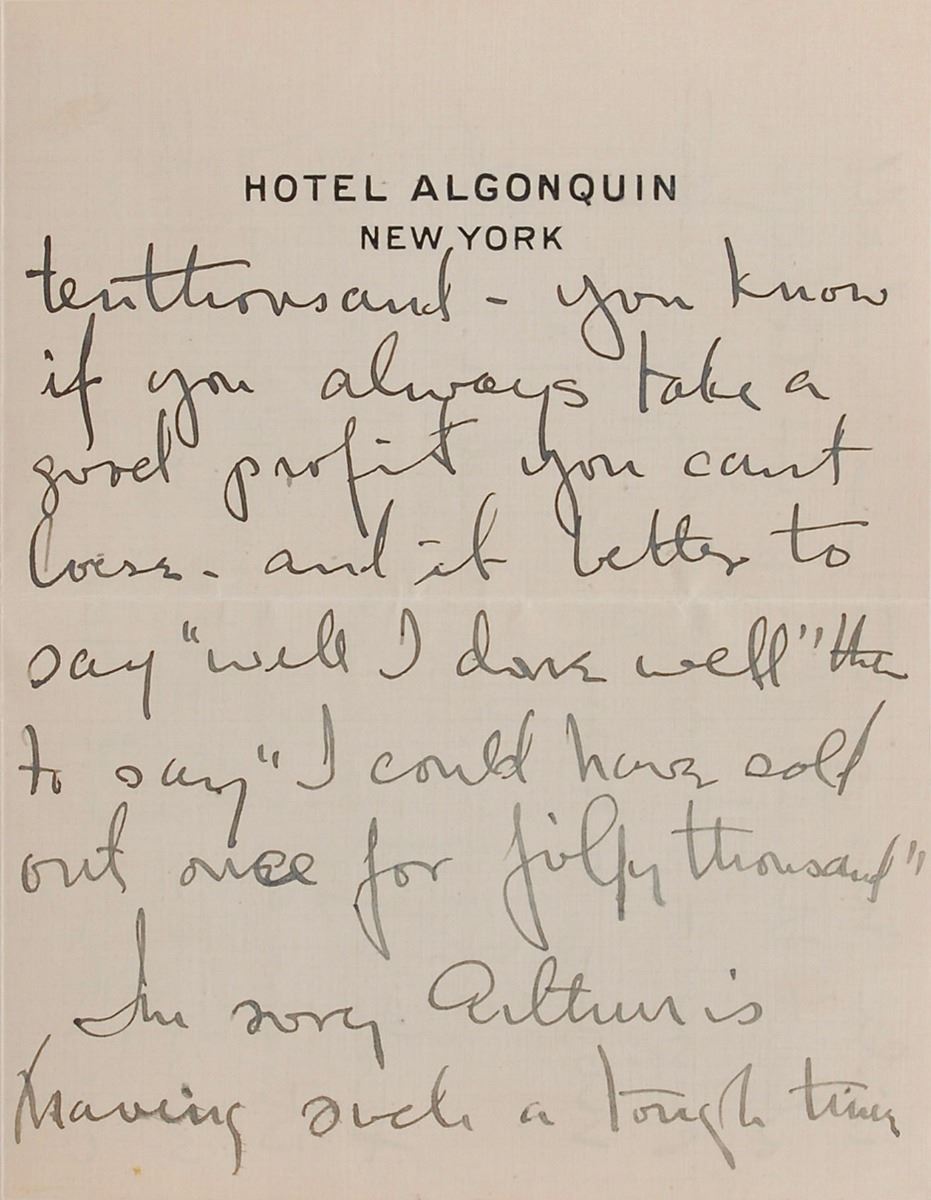 HOTEL ALGONQUIN
NEW YORK
tenthousand - you know
if you always take a
good profit you cant
loese - and it better to
say "well I done well" then
to say "I could have sold
out once for fifty thousand"
Im sorry Arthur is
having such a tough time